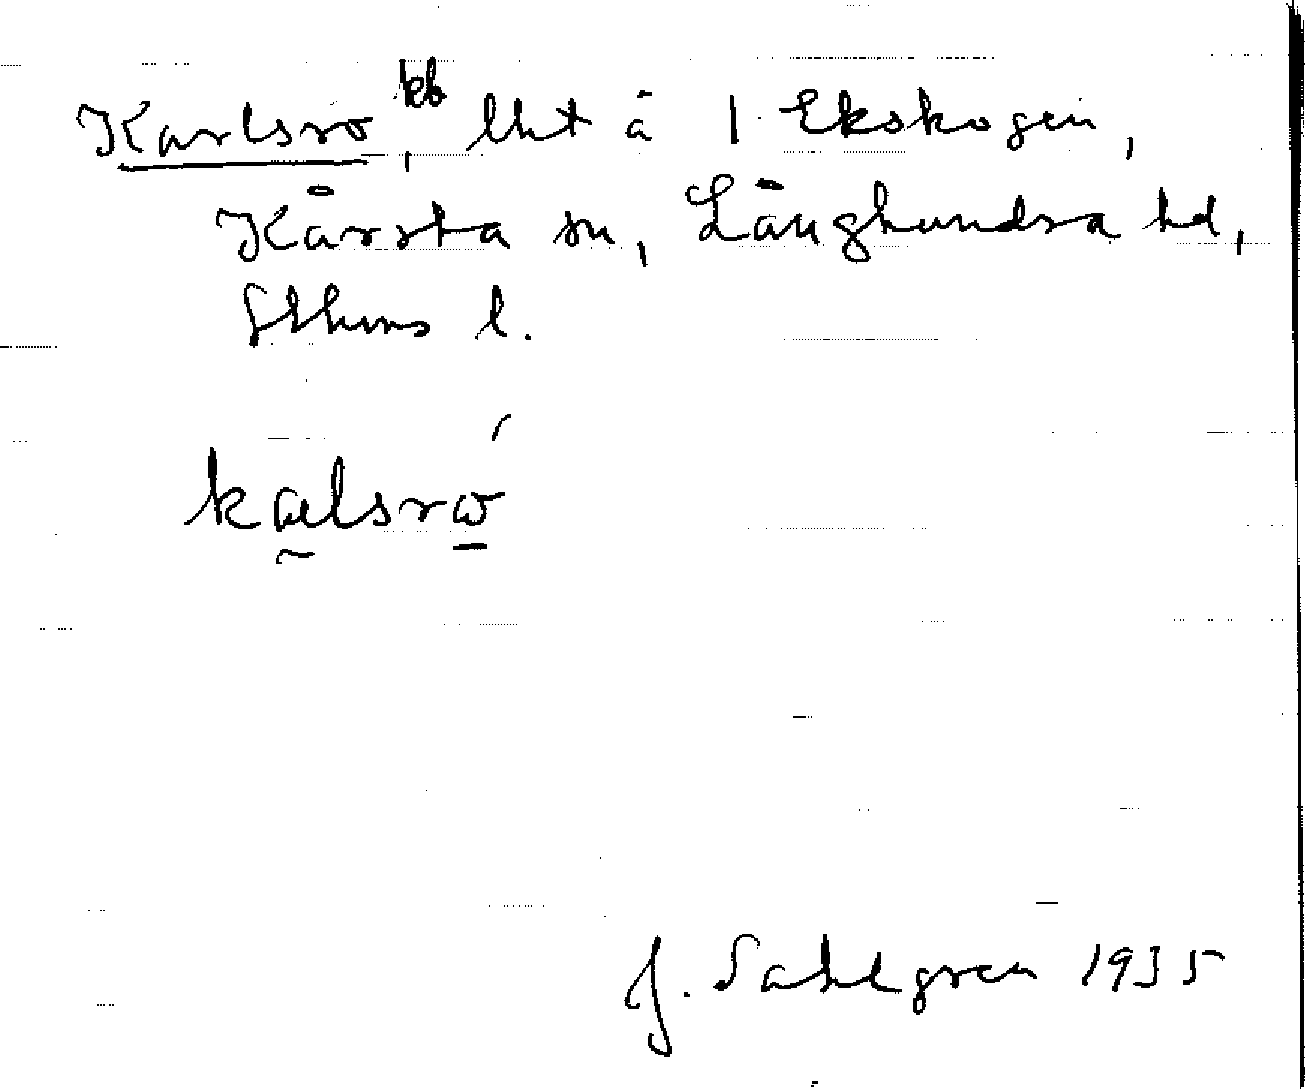 Karlsro kb, lht å 1 Ekskogen,
Kårsta sn, Långhundra hd,
Sthms l.
kalsro´
J. Sahlgren 1935